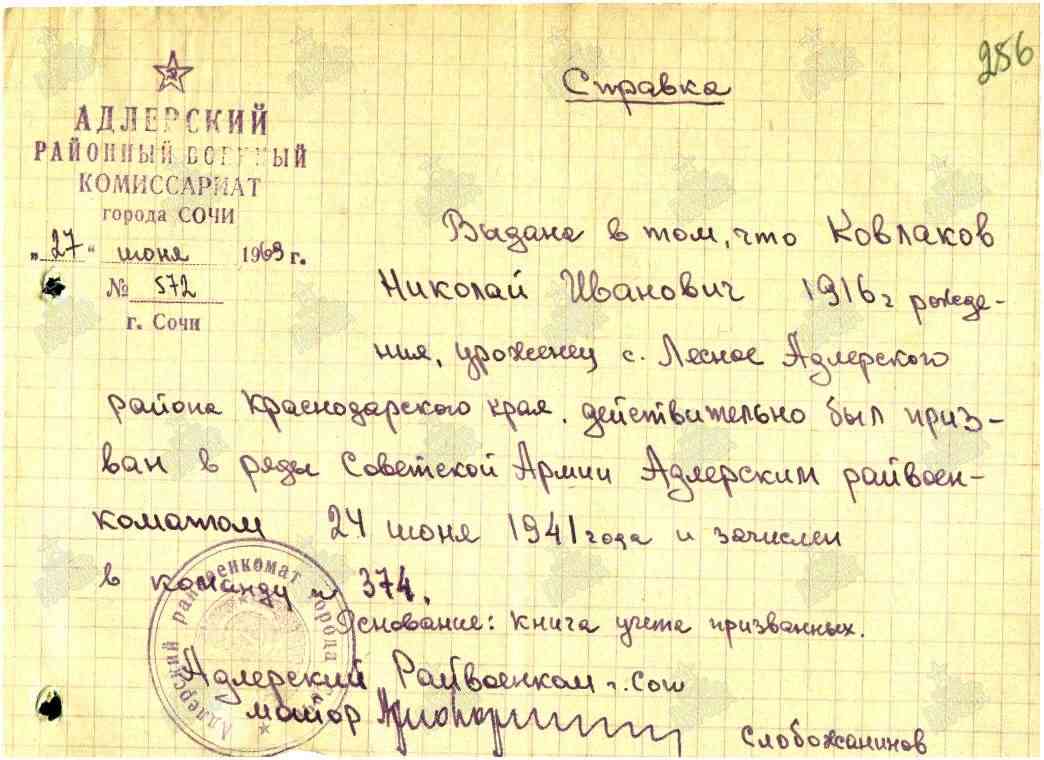 256
Справка
АДЛЕРСКИЙ
РАЙОННЫЙ ВОЕННЫЙ
КОМИССАРИАТ
города СОЧИ
„27“ июня 1969 г.
№ 572
г. Сочи
Выдана в том, что Ковлаков
Николай Иванович 1916 г рожде-
ния, уроженец с. Лесное Адлерского
района Краснодарского края. действительно был приз-
ван в ряды Советской Армии Адлерским райвоен-
коматом 24 июня 1941 года и зачислен
в команду № 374.
Основание: книга учета призванных.
Адлерский Райвоенком г. Сочи
майор
Слобожанинов
Адлерский райвоенкомат города